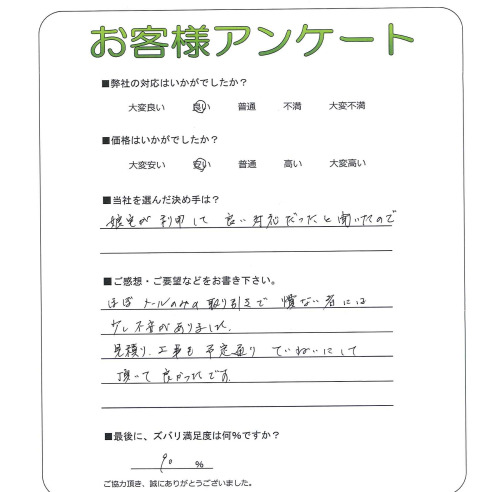 お客様アンケート
■弊社の対応はいかがでしたか？
大変良い 良い 普通 不満 大変不満
■価格はいかがでしたか？
大変安い 安い 普通 高い 大変高い
■当社を選んだ決め手は？
娘宅が利用して良い対応だったと聞いたので
■ご感想・ご要望などをお書き下さい。
ほぼメールのみの取り引きで慣ない者には
少し不安がありました。
見積り、工事も予定通りていねいにして
頂って良かったです。
■最後に、ズバリ満足度は何%ですか？
90 %
ご協力頂き、誠にありがとうございました。